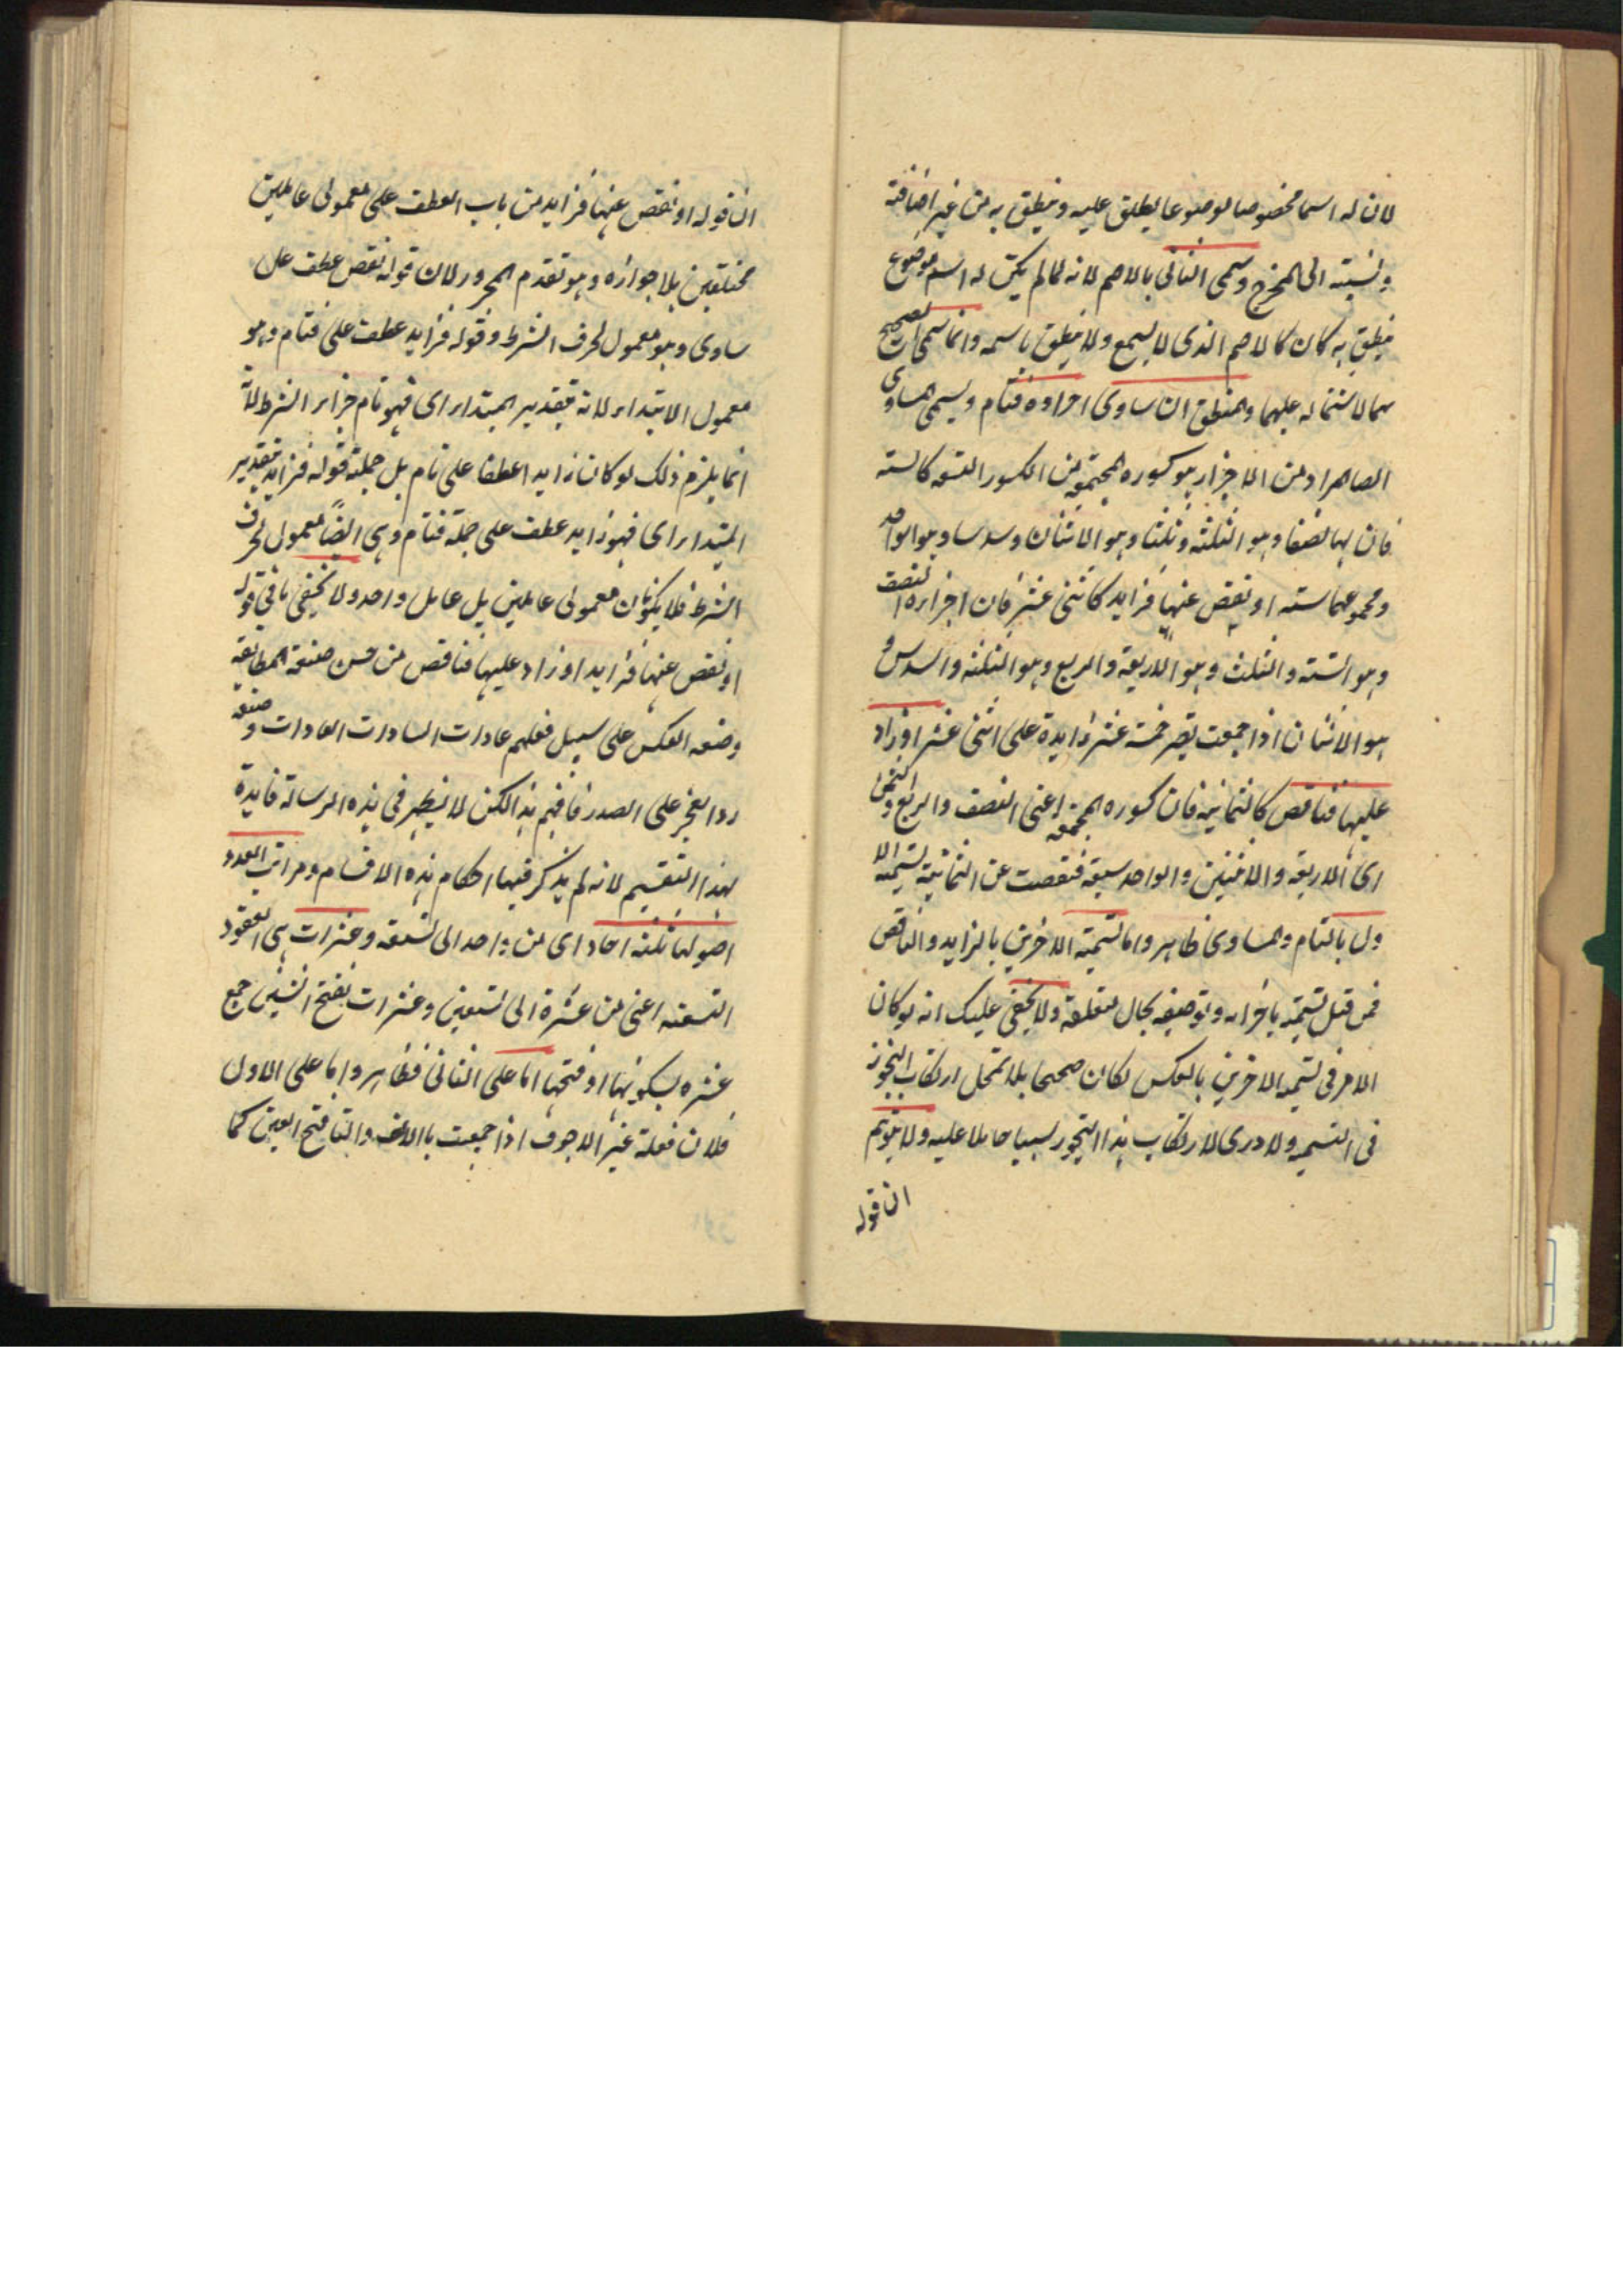 لان له اسما مخصوصا موضوعا يطلق عليه وينطق به من غير اضافة
ونسبته الى المخرج وسمى الثانى بالاصم لانه لما لم يكن له اسم موضوع
ينطق به كان كالاصم الذى لا يسمع ولا ينطق باسمه وانما سمى الصحيح
بهما لاشتماله عليهما والمنطق ان ساوى اجزاوه فتام ويسمى المساوى
المراد من الاجزاء هو كسوره المجتمعة من الكسور التسعه كالسته
فان لها نصفا وهو الثلثه وثلثا وهو الاثنان وسدسا وهو الواحد
ومجموعهما سته او نقص عنها فزايد كاثنى عشر فان اجزاءه النصف
وهو الستة والثلث وهو الاربعة والربع وهو الثلثه والسدس و
هو الاثنان اذا جمعت يصير خمسة عشر زايدة على اثنى عشر او زاد
عليها فناقص كالثمانية فان كسوره المجتمعه اعنى النصف والربع والثمن
اى الاربعه والاثنين والواحد سبعة فنقصت عن الثمانية تسمية الا
ول بالتام والمساوى ظاهر واما تسمية الاخرين بالزايد والناقص
فمن قبل تسميته باجزائه وتوصيفه بحال متعلقه ولا يخفى عليك انه لو كان
الامر فى تسمية الاخرين بالعكس لكان صحيحا بلا تمحل ارتكاب التجوز
فى التسميه ولا درى لارتكاب هذا التجوز سببا حاملا عليه ولا يتوهم
ان قوله
ان قوله او نقص عنها فزايد من باب العطف على معمولى عاملين
مختلفين بلا جوازه وهو تقدم المجرور لان قوله نقص عطف على
ساوى وهو معمول لحرف الشرط وقوله فزايد عطف على فتام وهو
معمول الابتداء لانه بتقدير المبتداء اى فهو تام جزاء الشرط لانا
انما يلزم ذلك لو كان زايد اعطفا على تام بل جملة قوله فزايد بتقدير
المبتداء اى فهو زايد عطف على جملة فتام وهى ايضاً معمول لحرف
الشرط فلا يكونان معمولى عاملين بل عامل واحد ولا يخفى ما فى قوله
او نقص عنها فزايد او زاد عليها فناقص من حسن صنعة المطابقة
وصنعه العكس على سبيل فعلهم عادات السادات سادات العادات و صنعه
رد العجز على الصدر فافهم هذا لكن لا يظهر فى هذه الرسالة فايدة
لهذا التقسيم لانه لم يذكر فيها احكام هذه الاقسام ومراتب العدد
اصولها ثلثه احاد اى من واحد الى تسعه وعشرات هى العقود
التسعه اعنى من عشرة الى تسعين وعشرات بفتح الشين جمع
عشره بسكونها او فتحها اما على الثانى فظاهر واما على الاول
فلان فعلة غير الاجوف اذا جمعت بالالف والتا فتح العين كما